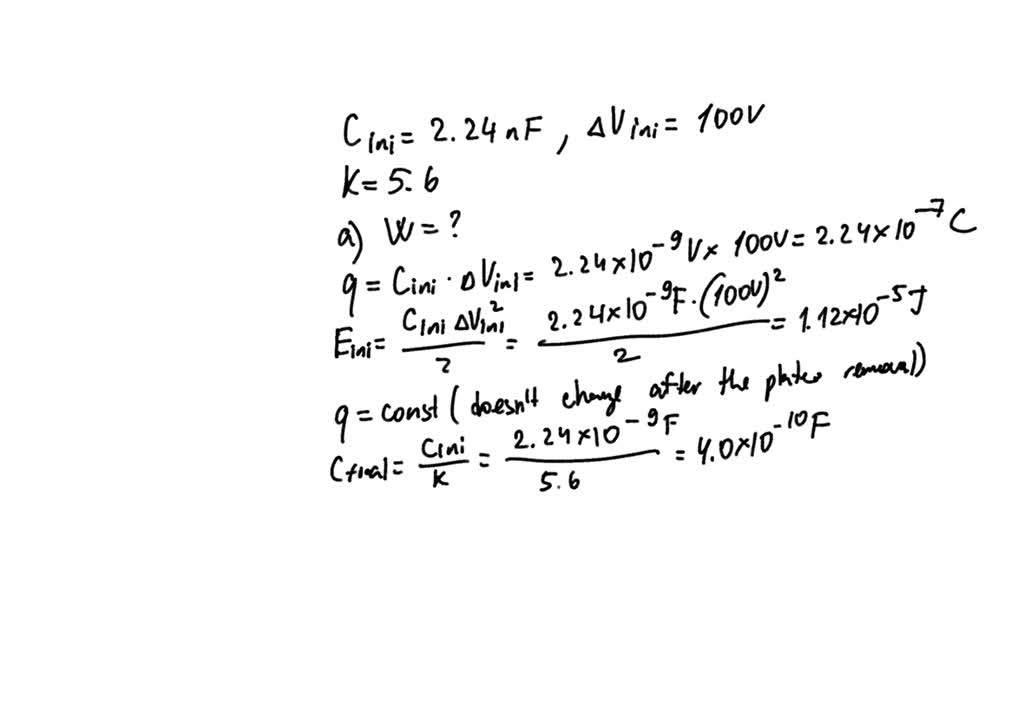 C ini = 2.24 nF, ΔV ini = 100V
K = 5.6
a) W = ?
q = C ini · ΔV ini = 2.24×10⁻⁹ V × 100V = 2.24×10⁻⁷ C
E ini = C ini ΔV ini² / 2 = 2.24×10⁻⁹F·(100V)² / 2 = 1.12×10⁻⁵ J
q = const (doesn't change after the plates removal)
C final = C ini / K = 2.24×10⁻⁹F / 5.6 = 4.0×10⁻¹⁰F